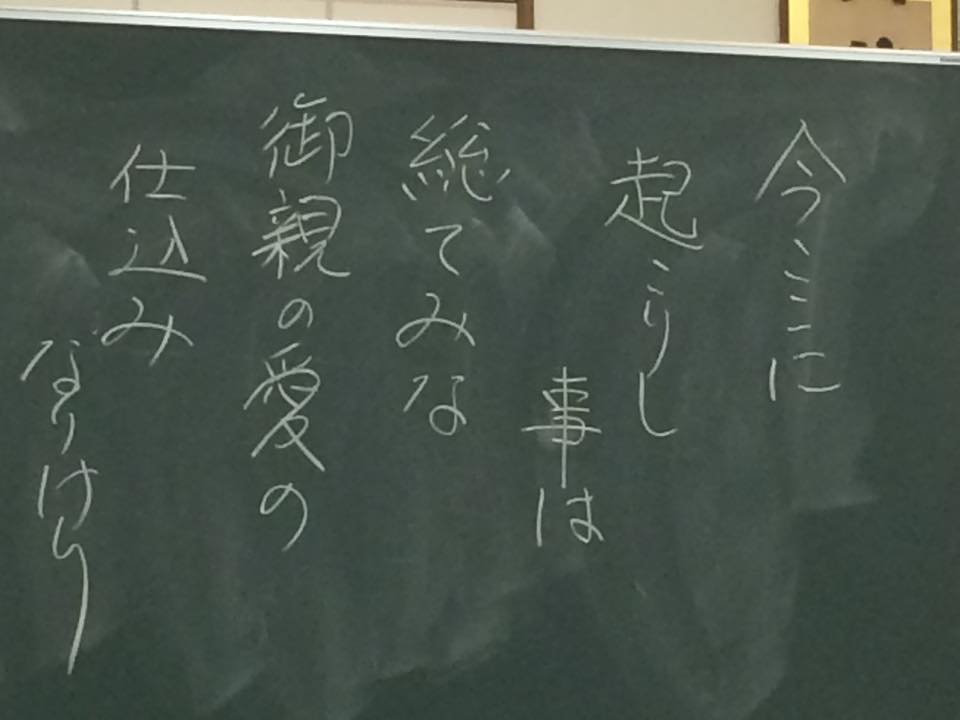 今ここに
起こりし
事は
総てみな
御親の愛の
仕込み
なりけり